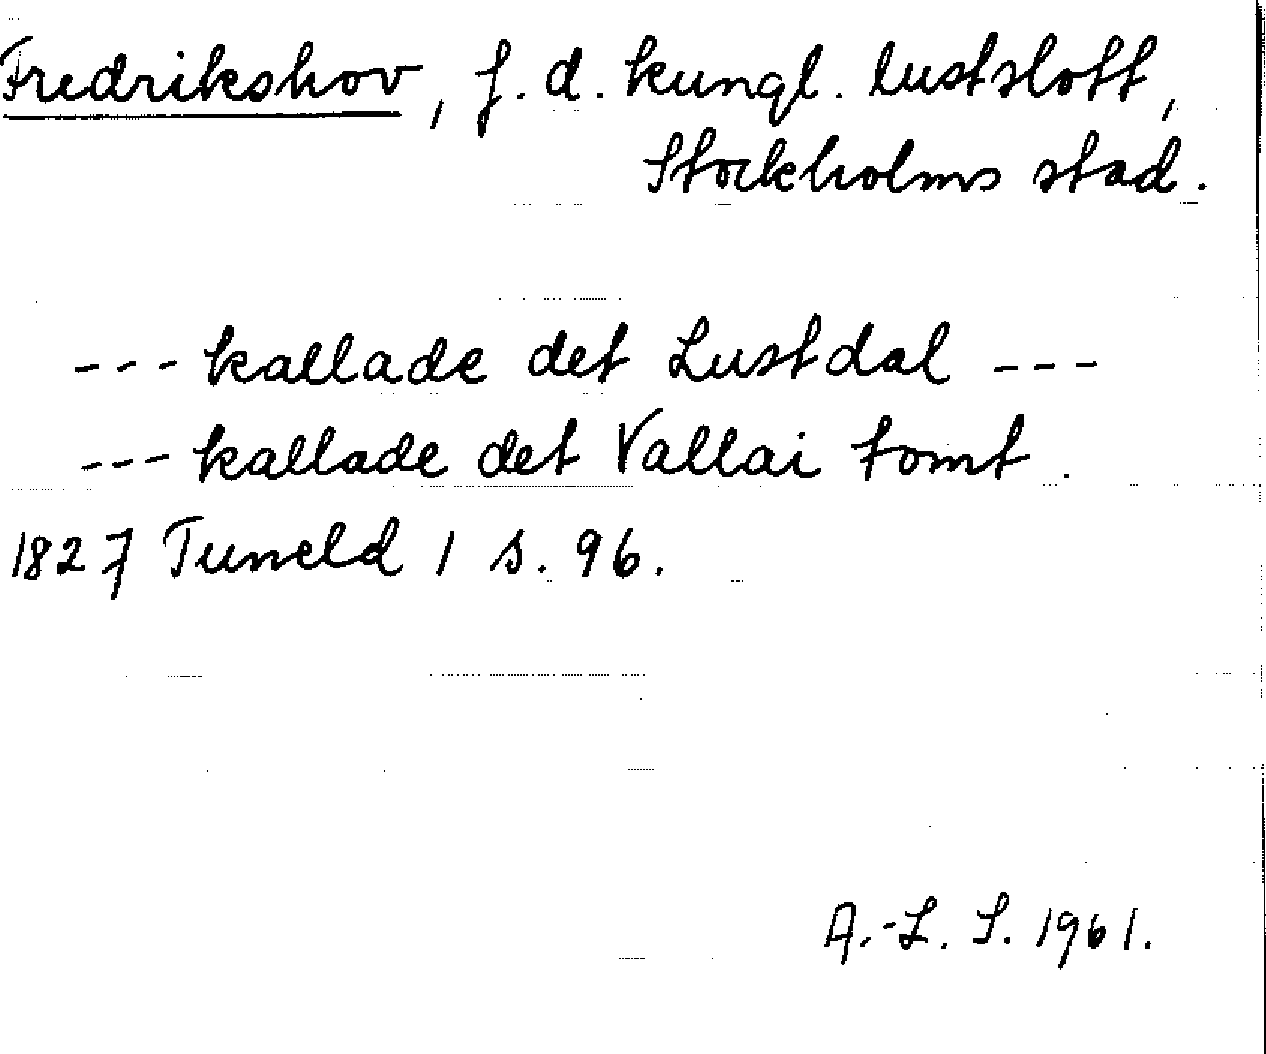 Fredrikshov, f. d. kungl. lustslott,
Stockholms stad.
--- kallade det Lustdal ---
--- kallade det Vallai tomt.
1827 Tuneld 1 s. 96.
A.-L. S. 1961.